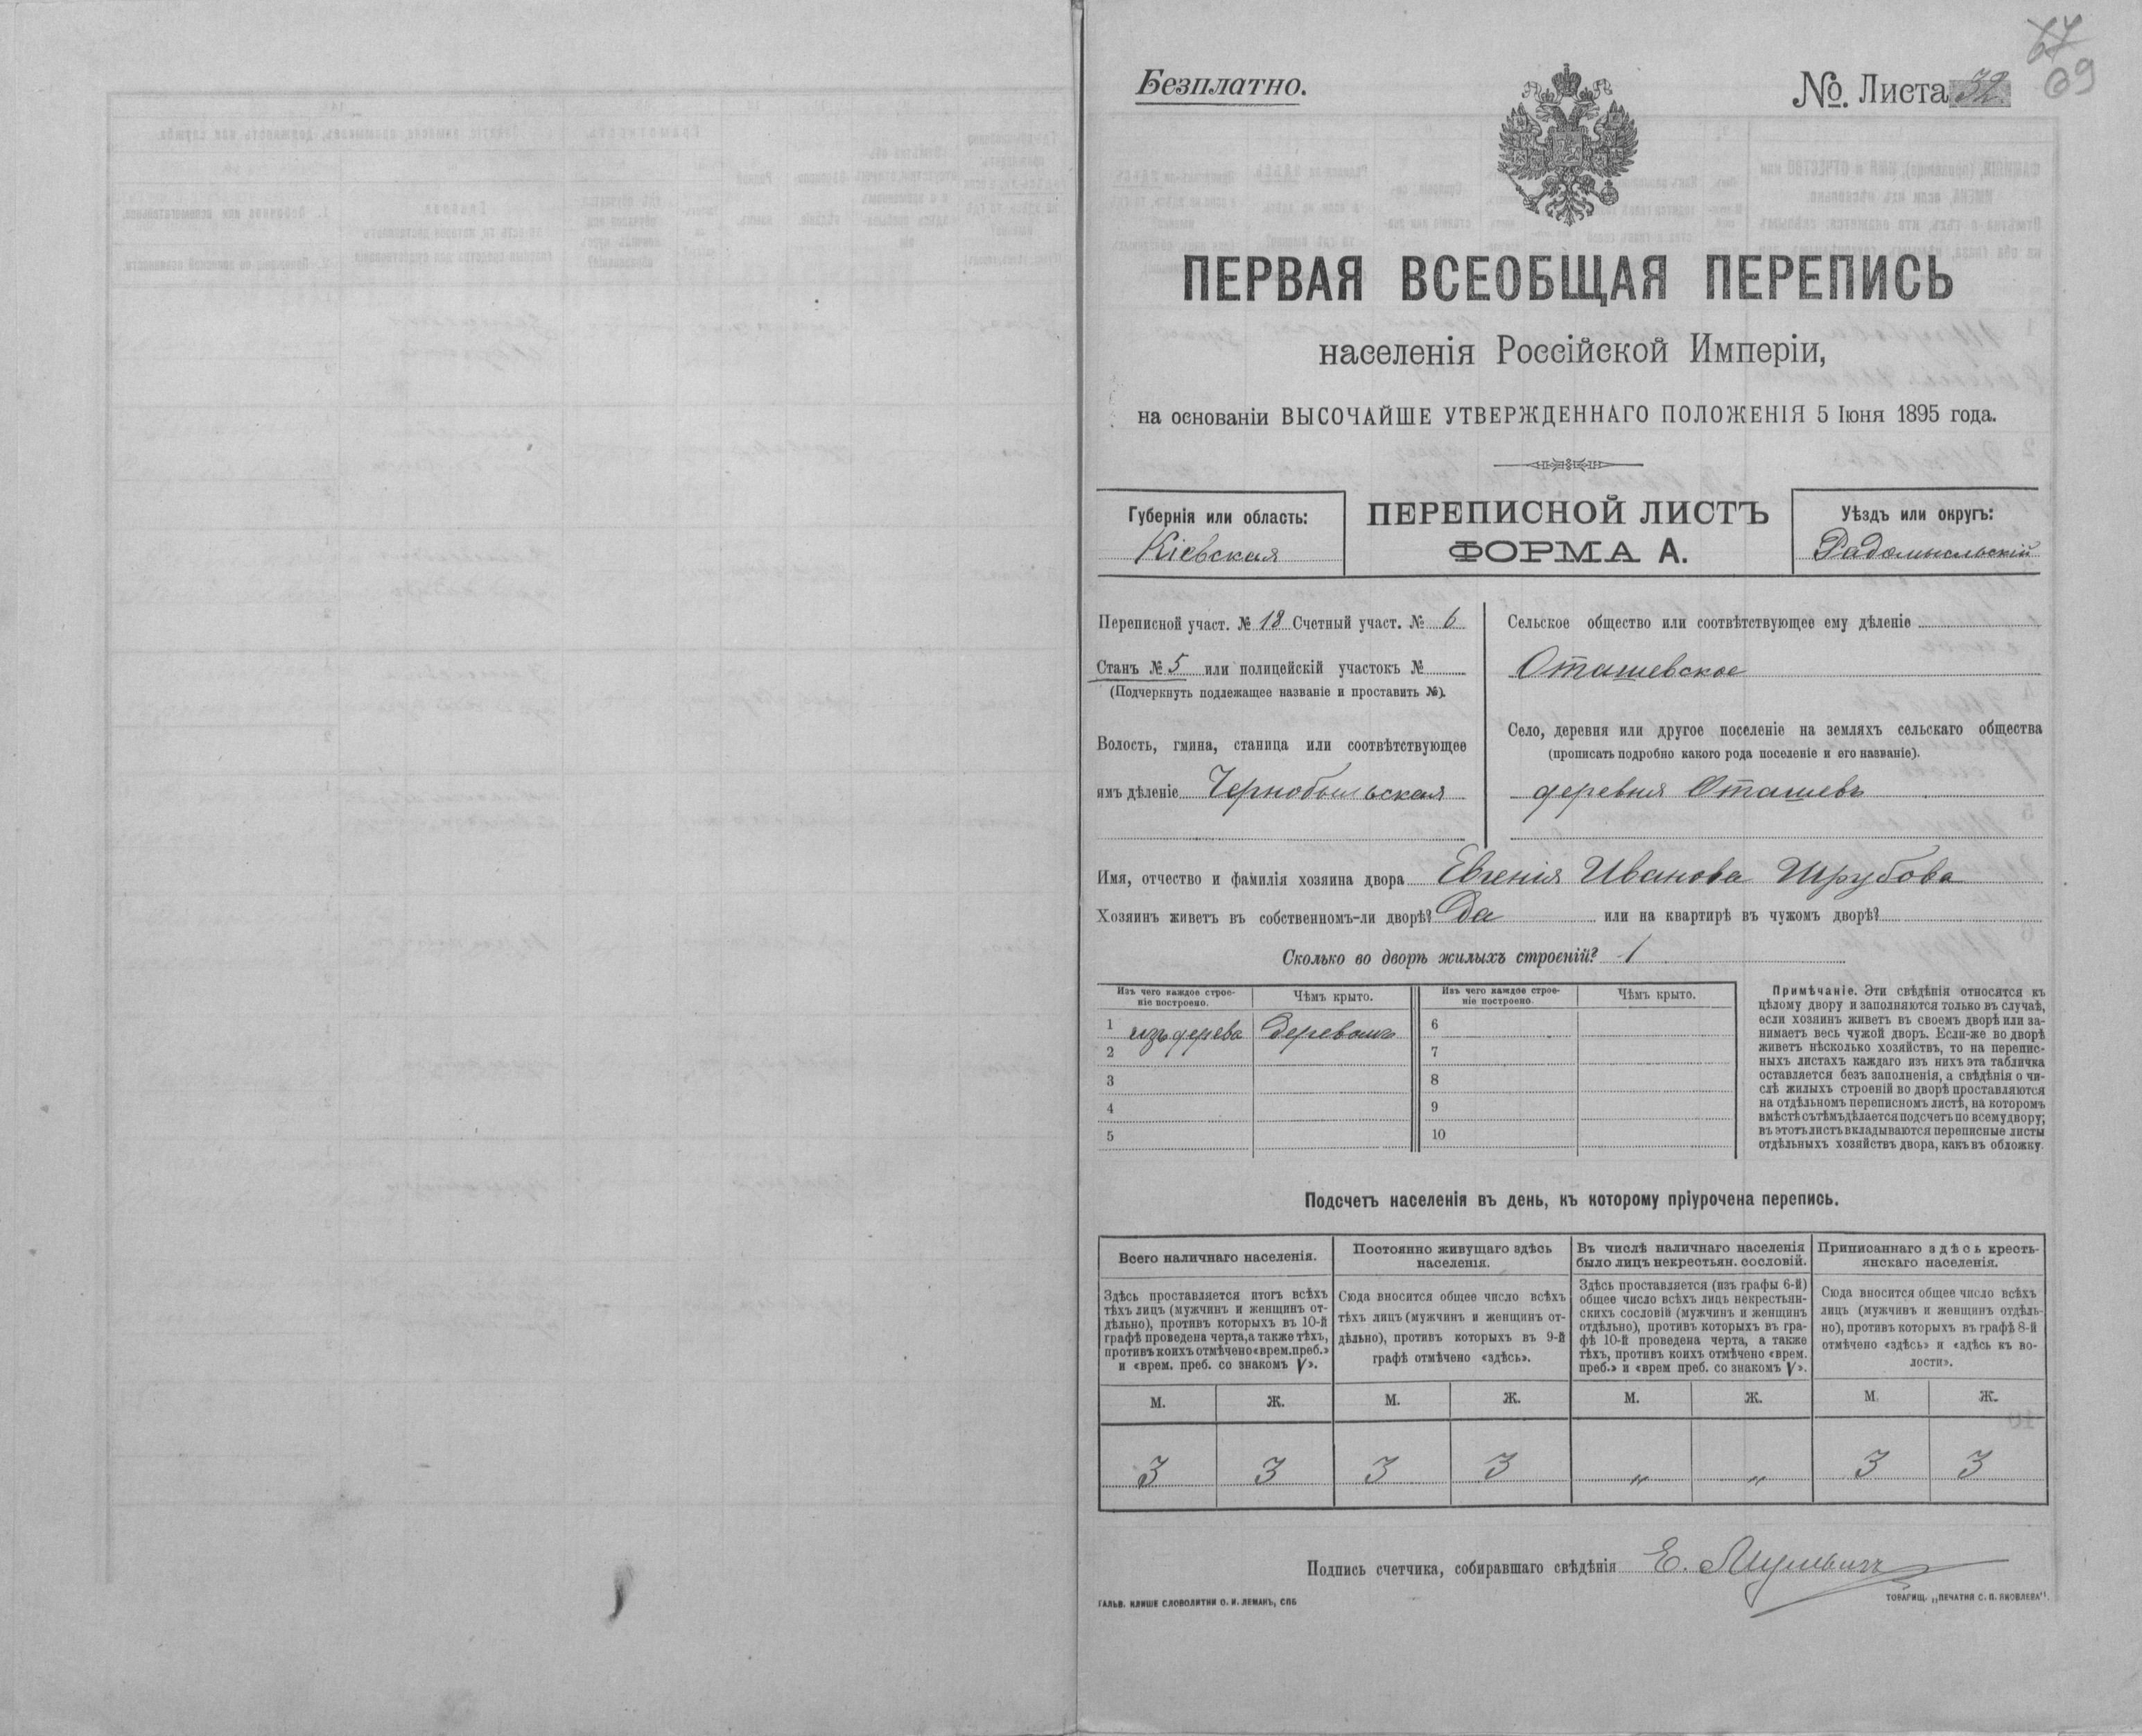 67
69
Безплатно.
№ Листа 32
ПЕРВАЯ ВСЕОБЩАЯ ПЕРЕПИСЬ
населенія Россійской Имперіи,
на основаніи ВЫСОЧАЙШЕ УТВЕРЖДЕННАГО ПОЛОЖЕНІЯ 5 Іюня 1895 года.
Губернія или область:
Кіевская
ПЕРЕПИСНОЙ ЛИСТЪ
ФОРМА А.
Уѣздъ или округъ:
Радомысльскій
Переписной участ. № 18 Счетный участ. № 6
Станъ № 5 или полицейскій участокъ №
(Подчеркнуть подлежащее названіе и проставить №).
Волость, гмина, станица или соотвѣтствующее
имъ дѣленіе Чернобыльская
Сельское общество или соотвѣтствующее ему дѣленіе
Оташевское
Село, деревня или другое поселеніе на земляхъ сельскаго общества
(прописать подробно какого рода поселеніе и его названіе).
деревня Оташевъ
Имя, отчество и фамилія хозяина двора Евгенія Иванова Шрубова
Хозяинъ живетъ въ собственномъ-ли дворѣ? Да или на квартирѣ въ чужомъ дворѣ?
Сколько во дворѣ жилыхъ строеній? 1
Изъ чего каждое строе-
ніе построено.
Чѣмъ крыто.
Изъ чего каждое строе-
ніе построено.
Чѣмъ крыто.
1 изъ дерева деревомъ
2
3
4
5
6
7
8
9
10
Примѣчаніе. Эти свѣдѣнія относятся къ
цѣлому двору и заполняются только въ случаѣ,
если хозяинъ живетъ въ своемъ дворѣ или за-
нимаетъ весь чужой дворъ. Если-же во дворѣ
живетъ нѣсколько хозяйствъ, то на перепис-
ныхъ листахъ каждаго изъ нихъ эта табличка
оставляется безъ заполненія, а свѣдѣнія о чи-
слѣ жилыхъ строеній во дворѣ проставляются
на отдѣльномъ переписномъ листѣ, на которомъ
вмѣстѣ съ тѣмъ дѣлается подсчетъ по всему двору;
въ этотъ листъ вкладываются переписные листы
отдѣльныхъ хозяйствъ двора, какъ въ обложку.
Подсчетъ населенія въ день, къ которому пріурочена перепись.
Всего наличнаго населенія.
Здѣсь проставляется итогъ всѣхъ
тѣхъ лицъ (мужчинъ и женщинъ от-
дѣльно), противъ которыхъ въ 10-й
графѣ проведена черта, а также тѣхъ,
противъ коихъ отмѣчено «врем. преб.»
и «врем. преб. со знакомъ V».
Постоянно живущаго здѣсь
населенія.
Сюда вносится общее число всѣхъ
тѣхъ лицъ (мужчинъ и женщинъ от-
дѣльно), противъ которыхъ въ 9-й
графѣ отмѣчено «здѣсь».
Въ числѣ наличнаго населенія
было лицъ некрестьян. сословій.
Здѣсь проставляется (изъ графы 6-й)
общее число всѣхъ лицъ некрестьян-
скихъ сословій (мужчинъ и женщинъ
отдѣльно), противъ которыхъ въ гра-
фѣ 10-й проведена черта, а также
тѣхъ, противъ коихъ отмѣчено «врем.
преб.» и «врем преб. со знакомъ V».
Приписаннаго здѣсь кресть-
янскаго населенія.
Сюда вносится общее число всѣхъ
лицъ (мужчинъ и женщинъ отдѣль-
но), противъ которыхъ въ графѣ 8-й
отмѣчено «здѣсь» и «здѣсь къ во-
лости».
М. Ж. М. Ж. М. Ж. М. Ж.
3 3 3 3 „ „ 3 3
Подпись счетчика, собиравшаго свѣдѣнія Е.
ГАЛЬВ. КЛИШЕ СЛОВОЛИТНИ О. И. ЛЕМАНЪ, СПБ
ТОВАРИЩ. „ПЕЧАТНЯ С. П. ЯКОВЛЕВА".